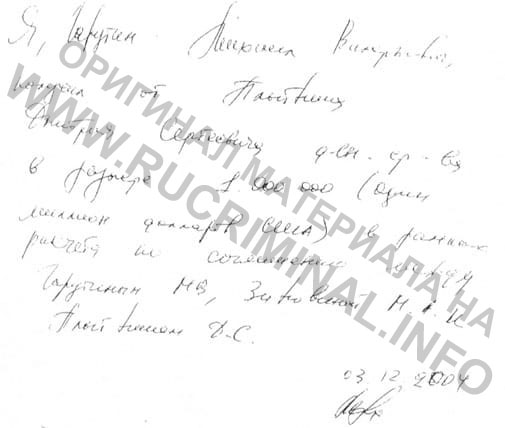 Я, Гарутин Михаил Викторович,
получил от Плотвина
Дмитрия Сергеевича д-ен. ср-ва
в размере 1.000 000 (один
миллион долларов США) в рамках
расчета по соглашению между
Гарутиным МВ, и
Плотвиным Д.С.
03.12.2004
ОРИГИНАЛ МАТЕРИАЛА НА
WWW.RUCRIMINAL.INFO